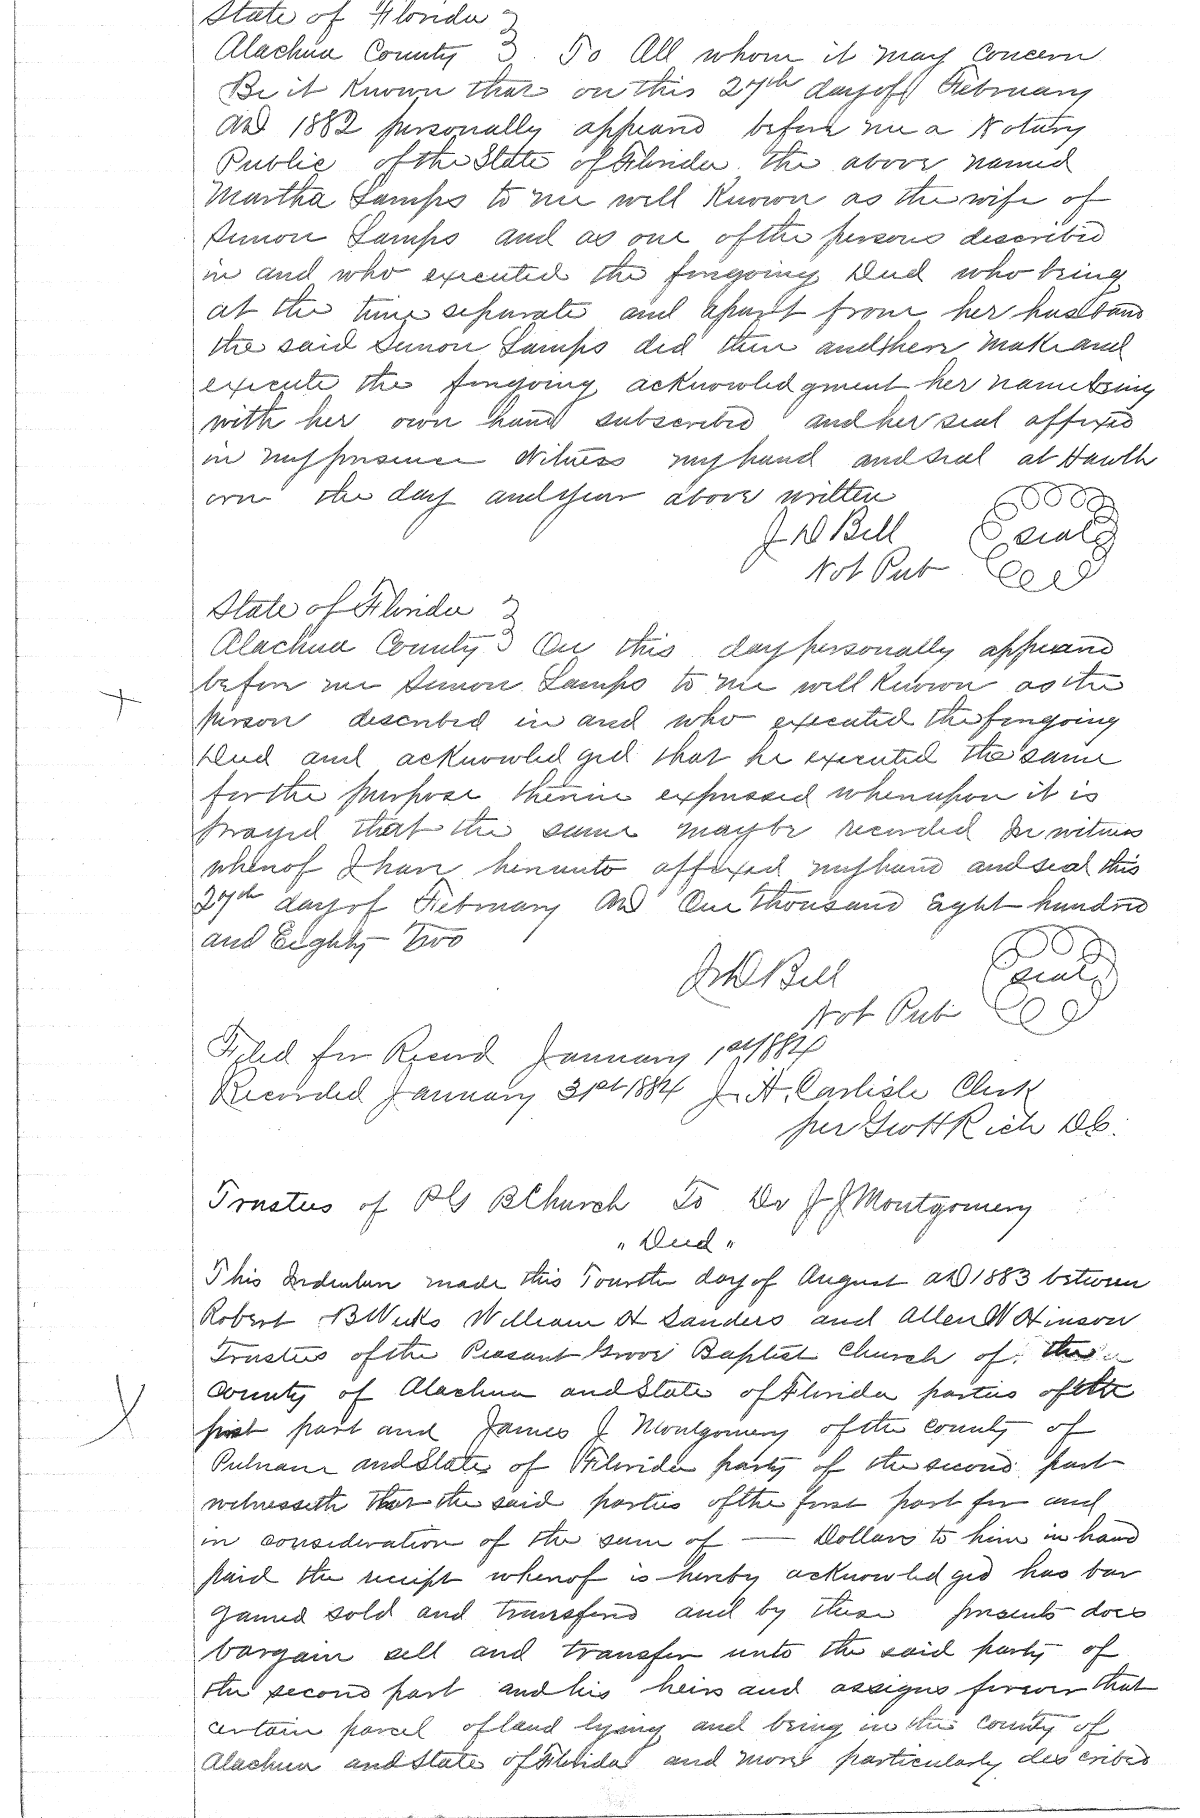 State of Florida }
Alachua County } To All whom it may Concern
Be it Known that on this 27th day of February
AD 1882 personally appeard before me a Notary
Public of the State of Florida the above named
Martha Lamps to me well Known as the wife of
Simon Lamps and as one of the persons described
in and who executed the foregoing Deed who being
at the time separate and apart from her husband
the said Simon Lamps did then and there make and
execute the foregoing acknowledgment her name being
with her own hand subscribed and her seal affixed
in my presence Witness my hand and seal at Hawth
orn the day and year above written
J D Bell seal
Not Pub
State of Florida }
Alachua County } On this day personally appeard
before me Simon Lamps to me well Known as the
person described in and who executed the foregoing
Deed and acknowledged that he executed the same
for the purpose therein expressed whereupon it is
prayed that the same may be recorded In witness
whereof I have hereunto affixed my hand and seal this
27th day of February AD One thousand Eight hundred
and Eighty Two
J D Bell seal
Not Pub
Filed for Record January 1st 1884
Recorded January 31st 1884 J. H. Carlisle Clerk
per Geo H Rich D C.
Trustees of P G B Church To Dr J J Montgomery
"Deed"
This Indenture made this Fourth day of August AD 1883 between
Robert B Weeks William H Sanders and Allen W Hinson
Trustees of the Peasant Grove Baptist Church of the
County of Alachua and State of Florida parties of the
first part and James J Montgomery of the county of
Putnam and State of Florida party of the second part
witnesseth that the said parties of the first part for and
in consideration of the sum of — Dollars to him in hand
paid the receipt whereof is hereby acknowledged has bar
gained sold and transferd and by these presents does
bargain sell and transfer unto the said party of
the second part and his heirs and assigns forever that
certain parcel of land lying and being in the county of
Alachua and State of Florida and more particularly described